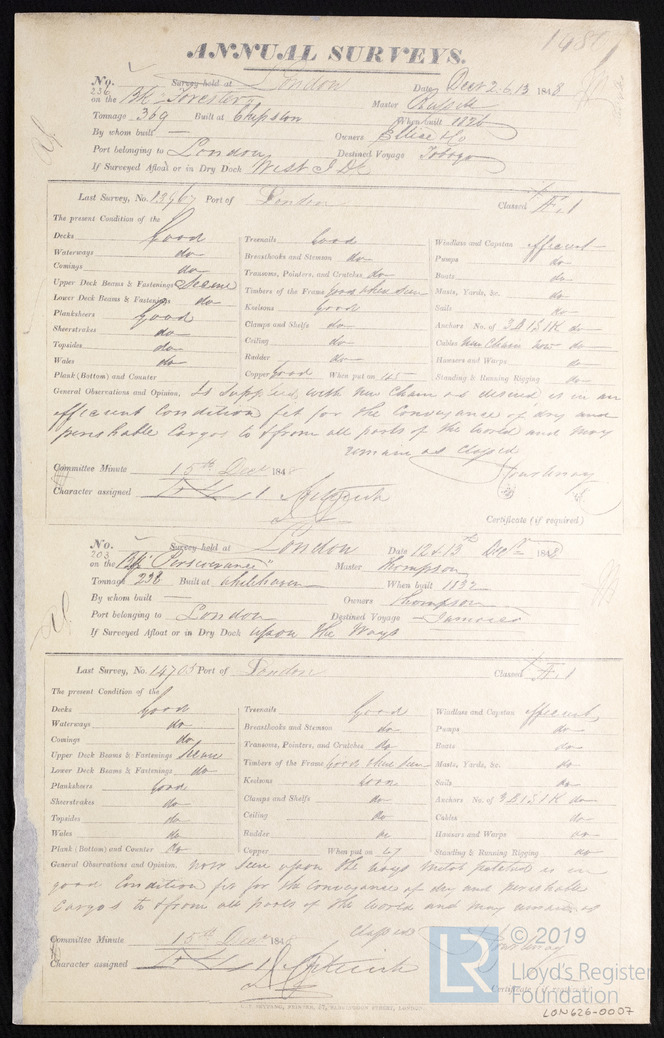 ANNUAL SURVEYS.
No. Survey held at London Date Decr 2. 6. 13 1848
236 on the Bk Forester Master
Tonnage 369 Built at Chepstow When built 1826
By whom built — Owners Ellice & Co
Port belonging to London Destined Voyage Tobago
If Surveyed Afloat or in Dry Dock West I Dk
Last Survey, No. 13967 Port of London Classed Æ 1
The present Condition of the
Decks Good Treenails Good Windlass and Capstan efficient
Waterways do Breasthooks and Stemson do Pumps do
Comings do Transoms, Pointers, and Crutches do Boats do
Upper Deck Beams & Fastenings Same Timbers of the Frame good when seen Masts, Yards, &c. do
Lower Deck Beams & Fastenings do Keelsons Good Sails do
Planksheers Good Clamps and Shelfs do Anchors No. of 3B 1S 1K do
Sheerstrakes do Ceiling do Cables New Chain now do
Topsides do Rudder do Hawsers and Warps do
Wales do Copper Good When put on 45 Standing & Running Rigging do
Plank (Bottom) and Counter
General Observations and Opinion, Is supplied with new Chain as described is in an
efficient Condition fit for the Conveyance of dry and
perishable Cargos to & from all parts of the World and may
remain as Classed
Courtenay
Committee Minute 15th Decr 1848
Character assigned Æ 1
Certificate (if required)
No. Survey held at London Date 12 & 13th Decr 1848
203 on the Bk "Perseverance" Master Thompson
Tonnage 238 Built at Whitehaven When built 1832
By whom built — Owners Thompson
Port belonging to London Destined Voyage Jamaica
If Surveyed Afloat or in Dry Dock upon the Ways
Last Survey, No. 14703 Port of London Classed Æ 1
The present Condition of the
Decks Good Treenails Good Windlass and Capstan efficient
Waterways do Breasthooks and Stemson do Pumps do
Comings do Transoms, Pointers, and Crutches do Boats do
Upper Deck Beams & Fastenings Same Timbers of the Frame Good when seen Masts, Yards, &c. do
Lower Deck Beams & Fastenings do Keelsons Good Sails do
Planksheers Good Clamps and Shelfs do Anchors No. of 3B 1S 1K do
Sheerstrakes do Ceiling do Cables do
Topsides do Rudder do Hawsers and Warps do
Wales do Copper When put on 47 Standing & Running Rigging do
Plank (Bottom) and Counter do
General Observations and Opinion, now seen upon the ways is in
good Condition fit for the Conveyance of dry and perishable
Cargos to & from all parts of the World and may remain as
Classed
Courtenay
Committee Minute 15th Decr 1848
Character assigned Æ 1
Certificate (if required)
© 2019
LR
Lloyd's Register
Foundation
LON626-0007